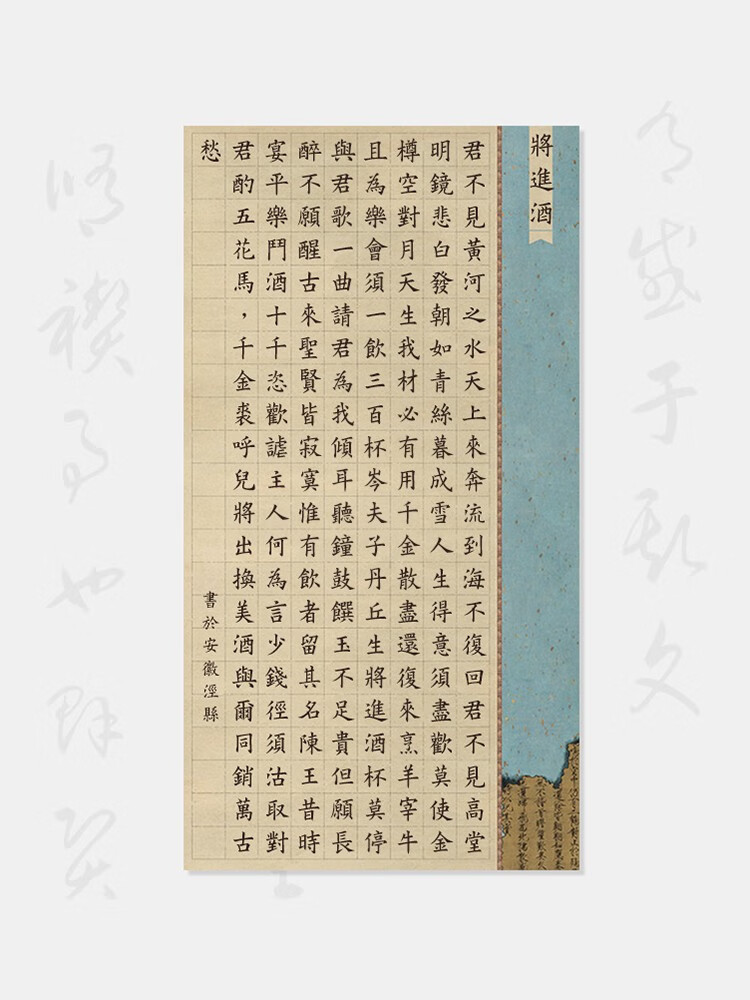 將進酒
君不見黃河之水天上來奔流到海不復回君不見高堂
明鏡悲白發朝如青絲暮成雪人生得意須盡歡莫使金
樽空對月天生我材必有用千金散盡還復來烹羊宰牛
且為樂會須一飲三百杯岑夫子丹丘生將進酒杯莫停
與君歌一曲請君為我傾耳聽鐘鼓饌玉不足貴但願長
醉不願醒古來聖賢皆寂寞惟有飲者留其名陳王昔時
宴平樂鬥酒十千恣歡謔主人何為言少錢徑須沽取對
君酌五花馬，千金裘呼兒將出換美酒與爾同銷萬古
愁
書於安徽涇縣